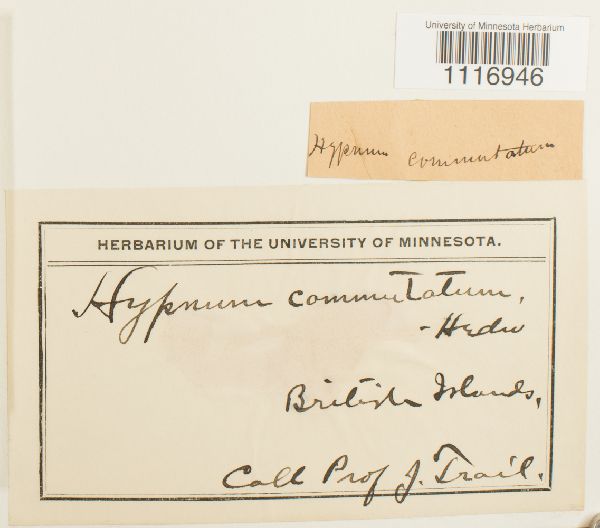 University of Minnesota Herbarium
1116946
Hypnum commutatum
HERBARIUM OF THE UNIVERSITY OF MINNESOTA.
Hypnum commutatum,
- Hedw
British Islands,
Coll Prof J. Trail.